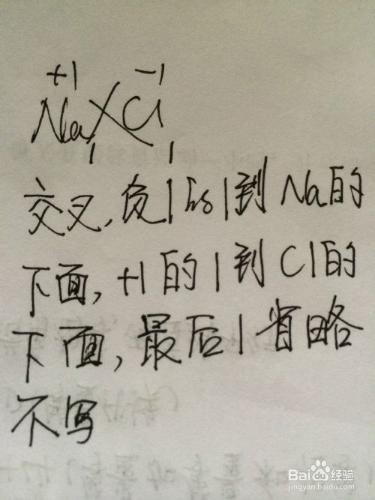 +1 -1
Na Cl
1 1
交叉,负1的1到Na的
下面,+1的1到Cl的
下面,最后1省略
不写
Baidu经验
jingyan.baidu.com